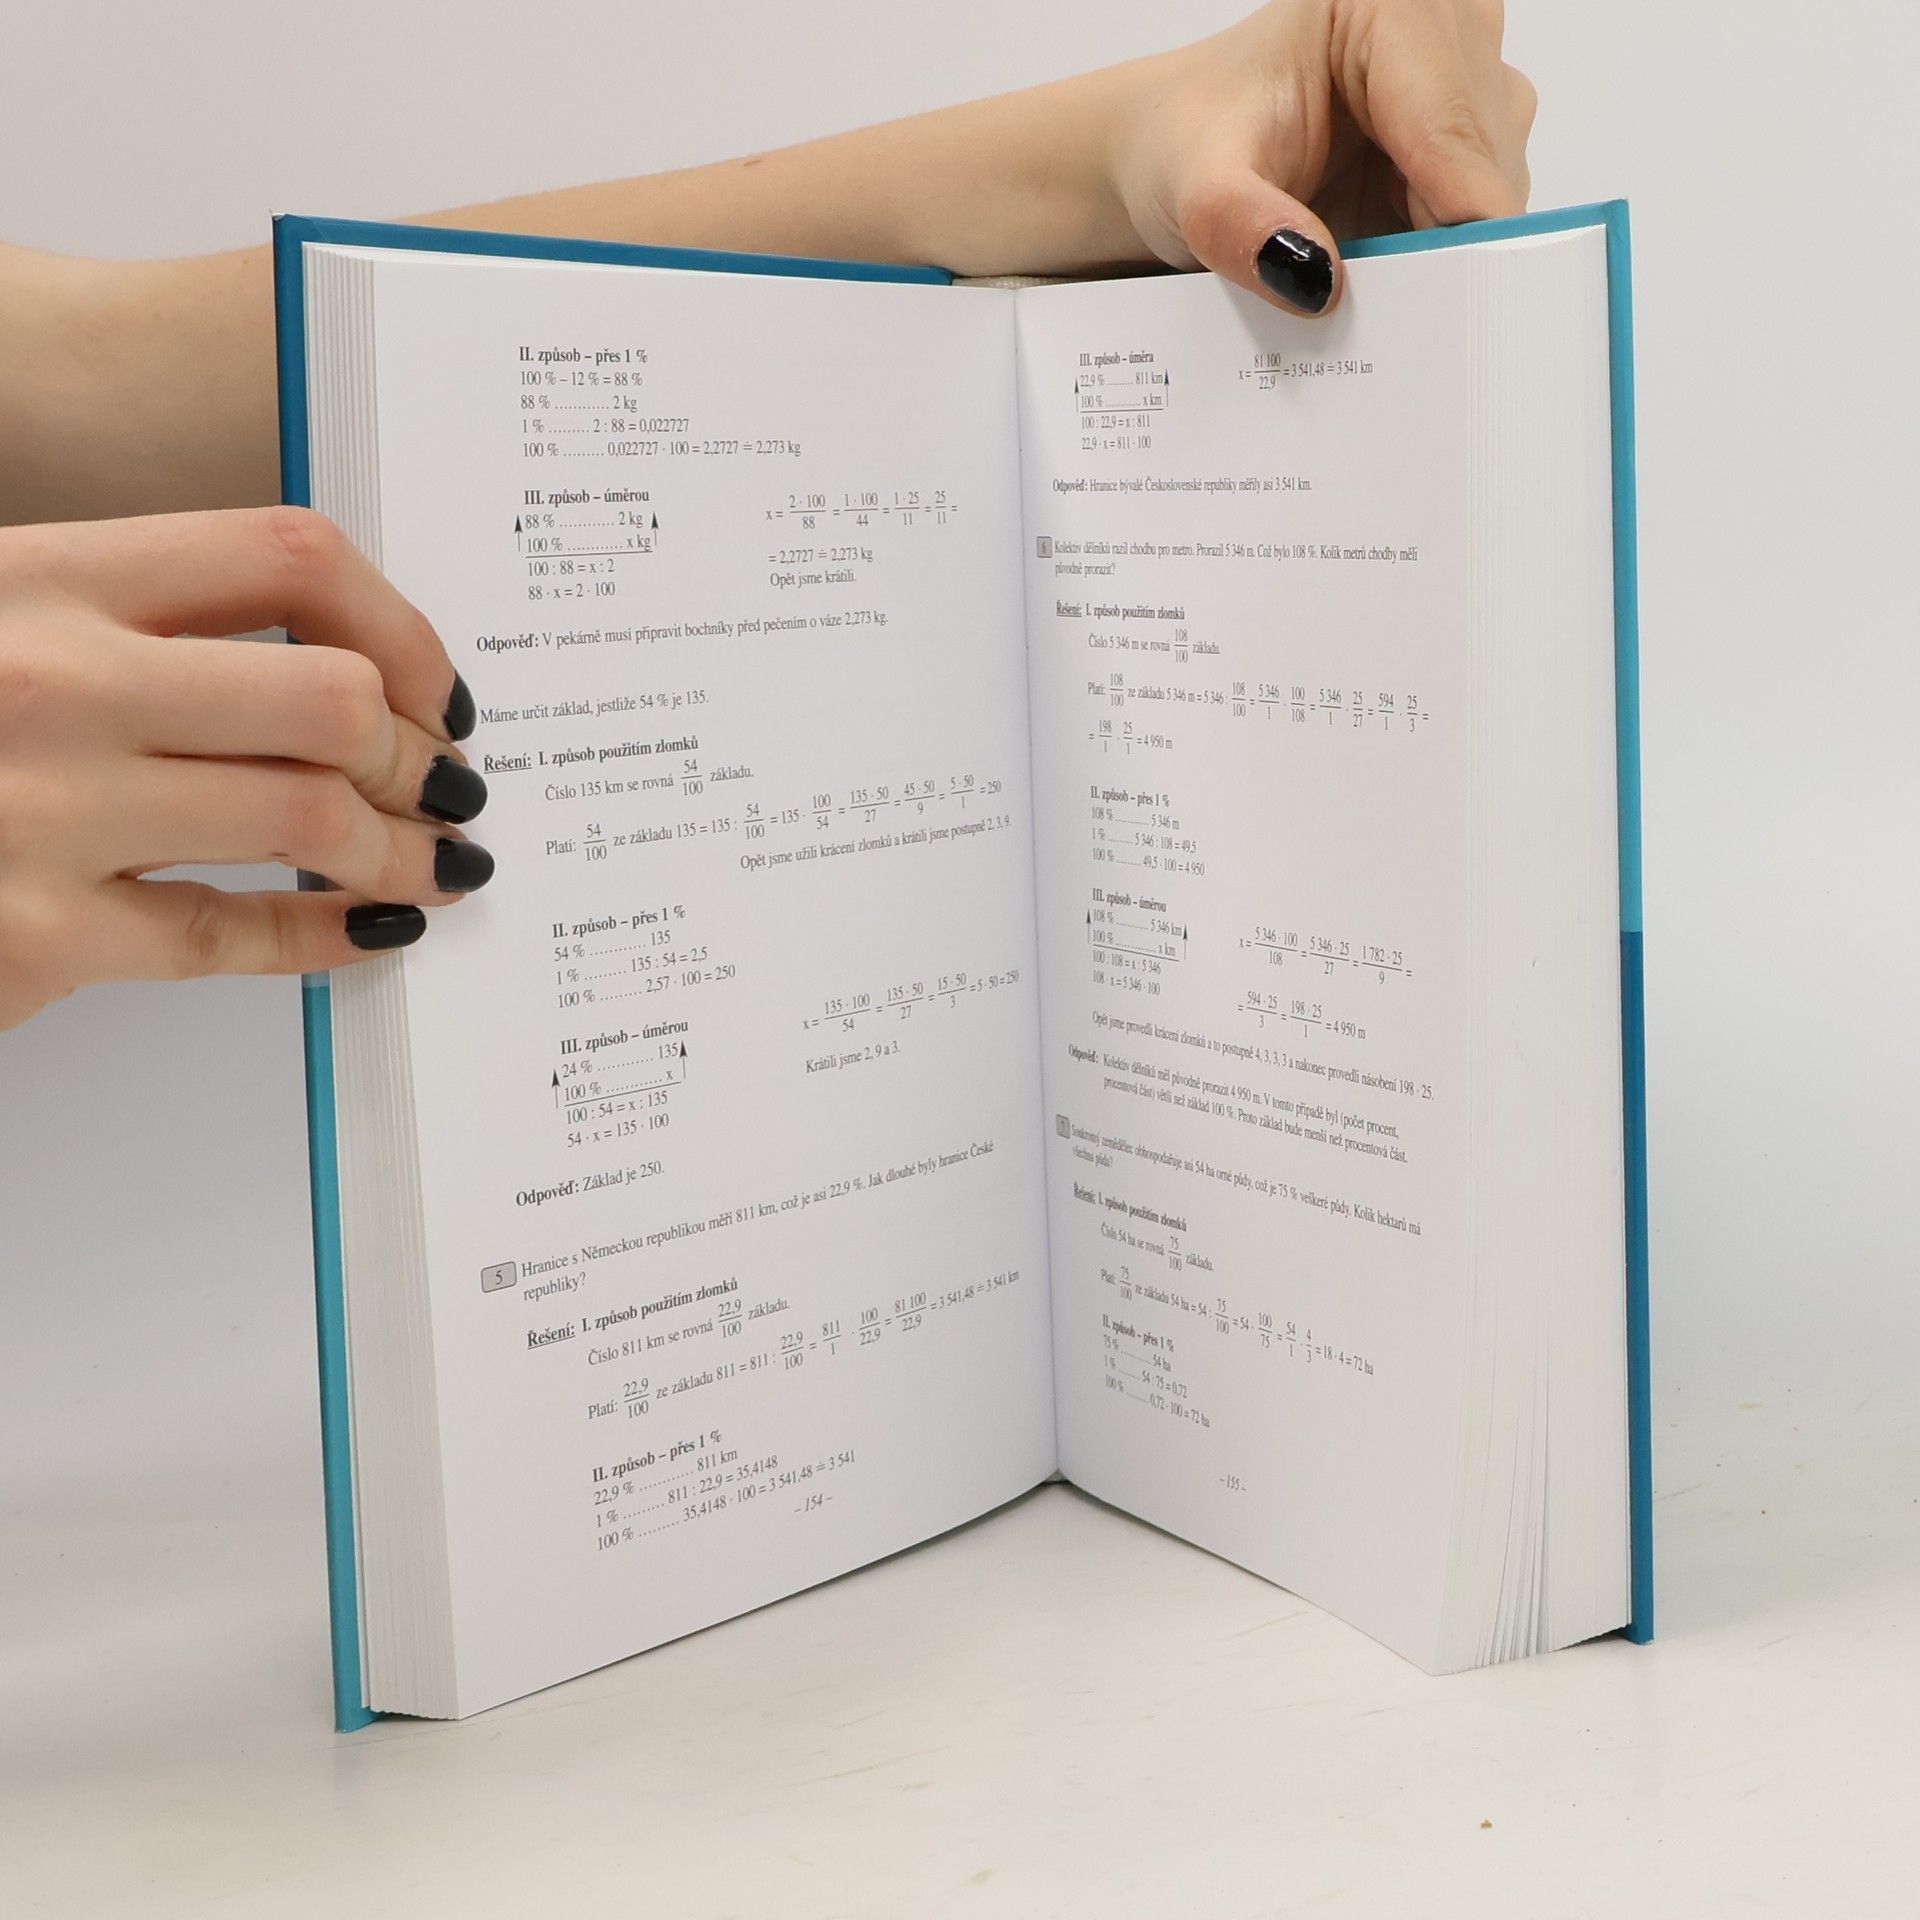 II. způsob – přes 1 %
100 % – 12 % = 88 %
88 % ............ 2 kg
1 % ......... 2 : 88 = 0,022727
100 % ......... 0,022727 · 100 = 2,2727 ≐ 2,273 kg
III. způsob – úměrou
88 % ............ 2 kg
100 % ............ x kg
100 : 88 = x : 2
88 · x = 2 · 100
x = 2 · 100 / 88 = 1 · 100 / 44 = 1 · 25 / 11 = 25 / 11 =
= 2,2727 ≐ 2,273 kg
Opět jsme krátili.
Odpověď: V pekárně musí připravit bochníky před pečením o váze 2,273 kg.
Máme určit základ, jestliže 54 % je 135.
Řešení: I. způsob použitím zlomků
Číslo 135 km se rovná 54/100 základu.
Platí: 54/100 ze základu 135 = 135 : 54/100 = 135 · 100/54 = 135 · 50 / 27 = 45 · 50 / 9 = 5 · 50 / 1 = 250
Opět jsme užili krácení zlomků a krátili jsme postupně 2, 3, 9.
II. způsob – přes 1 %
54 % ............ 135
1 % ......... 135 : 54 = 2,5
100 % ......... 2,57 · 100 = 250
III. způsob – úměrou
24 % ............ 135
100 % ............ x
100 : 54 = x : 135
54 · x = 135 · 100
x = 135 · 100 / 54 = 135 · 50 / 27 = 15 · 50 / 3 = 5 · 50 = 250
Krátili jsme 2, 9 a 3.
Odpověď: Základ je 250.
5 Hranice s Německou republikou měří 811 km, což je asi 22,9 %. Jak dlouhé byly hranice České
republiky?
Řešení: I. způsob použitím zlomků
Číslo 811 km se rovná 22,9/100 základu.
Platí: 22,9/100 ze základu 811 = 811 : 22,9/100 = 811/1 · 100/22,9 = 81 100/22,9 = 3 541,48 ≐ 3 541 km
II. způsob – přes 1 %
22,9 % ............ 811 km
1 % ......... 811 : 22,9 = 35,4148
100 % ......... 35,4148 · 100 = 3 541,48 ≐ 3 541
– 154 –
III. způsob – úměra
22,9 % ......... 811 km
100 % ............ x km
100 : 22,9 = x : 811
22,9 · x = 811 · 100
x = 81 100 / 22,9 = 3 541,48 ≐ 3 541 km
Odpověď: Hranice bývalé Československé republiky měřily asi 3 541 km.
6 Kolektiv dělníků razil chodbu pro metro. Prorazil 5 346 m. Což bylo 108 %. Kolik metrů chodby měli
původně prorazit?
Řešení: I. způsob použitím zlomků
Číslo 5 346 m se rovná 108/100 základu.
Platí: 108/100 ze základu 5 346 m = 5 346 : 108/100 = 5 346/1 · 100/108 = 5 346/1 · 25/27 = 594/1 · 25/3 =
= 198/1 · 25/1 = 4 950 m
II. způsob – přes 1 %
108 % ............ 5 346 m
1 % ......... 5 346 : 108 = 49,5
100 % ......... 49,5 · 100 = 4 950
III. způsob – úměrou
108 % ............ 5 346 km
100 % ............ x km
100 : 108 = x : 5 346
108 · x = 5 346 · 100
x = 5 346 · 100 / 108 = 5 346 · 25 / 27 = 1 782 · 25 / 9 =
= 594 · 25 / 3 = 198 · 25 / 1 = 4 950 m
Opět jsme provedli krácení zlomků a to postupně 4, 3, 3, 3 a nakonec provedli násobení 198 · 25.
Odpověď: Kolektiv dělníků měl původně prorazit 4 950 m. V tomto případě byl (počet procent,
procentová část) větší než základ 100 %. Proto základ bude menší než procentová část.
7 Soukromý zemědělec obhospodařuje asi 54 ha orné půdy, což je 75 % veškeré půdy. Kolik hektarů má
všechna půda?
Řešení: I. způsob použitím zlomků
Číslo 54 ha se rovná 75/100 základu.
Platí: 75/100 ze základu 54 ha = 54 : 75/100 = 54 · 100/75 = 54/1 · 4/3 = 18 · 4 = 72 ha
II. způsob – přes 1 %
75 % ............ 54 ha
1 % ......... 54 : 75 = 0,72
100 % ......... 0,72 · 100 = 72 ha
– 155 –